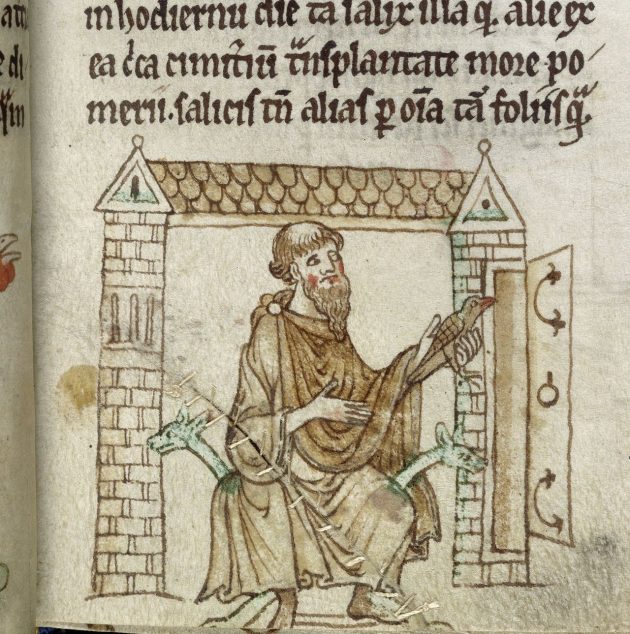 in hodiernū diē tā salix illa q̄. alie ex
ea c̓ca cimit̓iū t̄nsplantate more po
merii. salicis tn̄ alias ꝑ oīa tā foliis q̄.